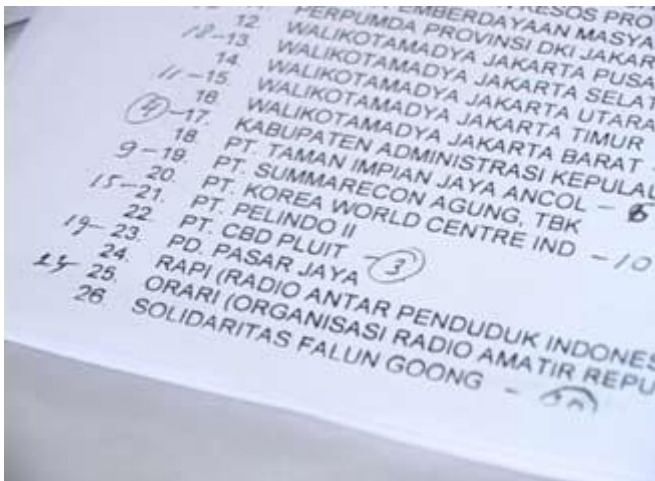 KESOS PRO
EMBERDAYAAN MASYA
PERPUMDA PROVINSI DKI JAKAR
12. WALIKOTAMADYA JAKARTA PUSA
18-13. WALIKOTAMADYA JAKARTA SELAT
14. WALIKOTAMADYA JAKARTA UTARA
11-15. WALIKOTAMADYA JAKARTA TIMUR
16. WALIKOTAMADYA JAKARTA BARAT -
4-17. KABUPATEN ADMINISTRASI KEPULAU
18. PT. TAMAN IMPIAN JAYA ANCOL - 6
9-19. PT. SUMMARECON AGUNG, TBK
20. PT. KOREA WORLD CENTRE IND - 10
15-21. PT. PELINDO II
22. PT. CBD PLUIT - 3
19-23. PD. PASAR JAYA
24. RAPI (RADIO ANTAR PENDUDUK INDONES
25. ORARI (ORGANISASI RADIO AMATIR REPU
26 SOLIDARITAS FALUN GOONG -